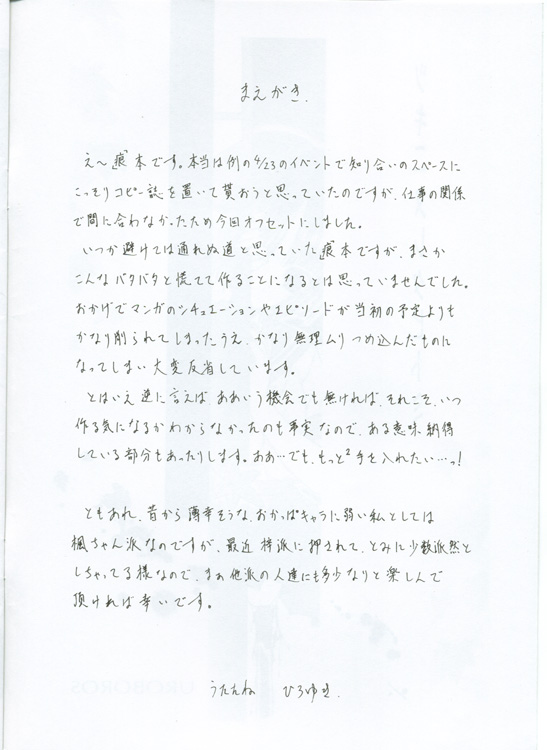 まえがき.
え〜痕本です。本当は例の4/23のイベントで知り合いのスペースに
こっそりコピー誌を置いて貰おうと思っていたのですが、仕事の関係
で間に合わなかったため今回オフセットにしました。
いつか避けては通れぬ道と思っていた痕本ですが、まさか
こんなバタバタと慌てて作ることになるとは思っていませんでした。
おかげでマンガのシチュエーションやエピソードが当初の予定よりも
かなり削られてしまったうえ、かなり無理ムリつめ込んだものに
なってしまい大変反省しています。
とはいえ逆に言えば、ああいう機会でも無ければ、それこそ、いつ
作る気になるかわからなかったのも事実なので、ある意味納得
している部分もあったりします。ああ…でも、もっと²手を入れたい…っ!
ともあれ、昔から薄幸そうな、おかっぱキャラに弱い私としては
楓ちゃん派なのですが、最近梓派に押されて、とみに少数派然と
しちゃってる様なので、まぁ他派の人達にも多少なりと楽しんで
頂ければ幸いです。
うたたね ひろゆき.
UROBOROS